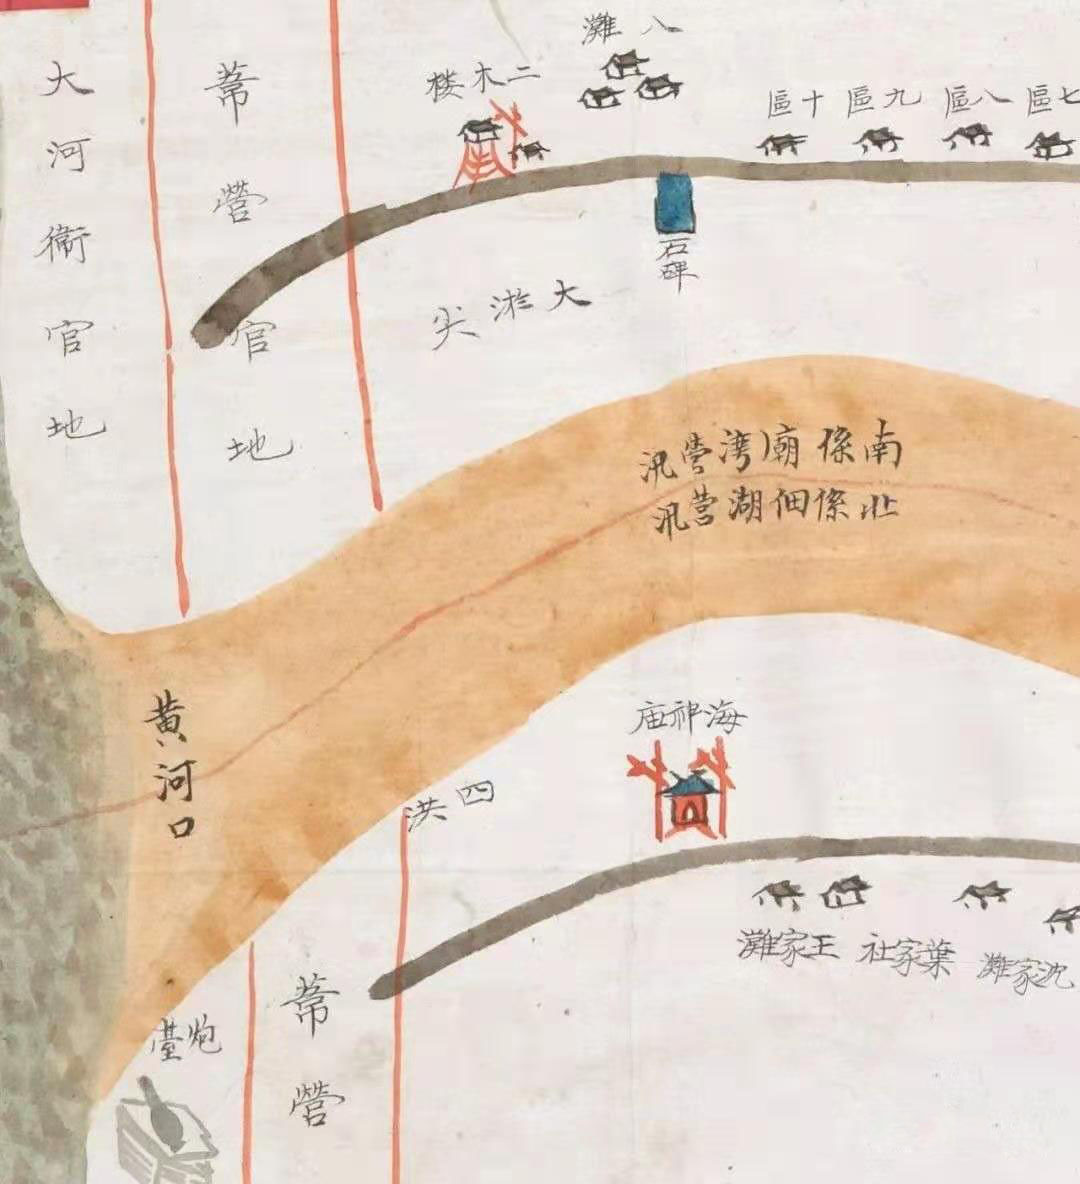 八灘
二木楼
七區
八區
九區
十區
大河衛官地
葦營官地
石碑
大淤尖
南係廟湾營汛
北係佃湖營汛
黄河口
海神庙
四洪
沈家灘
葉家社
王家灘
葦營
炮臺